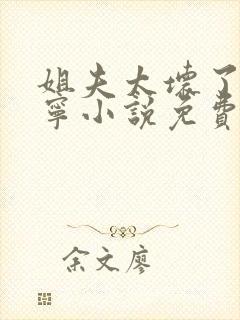 姐夫太坏了
宁小說免費
余文廖